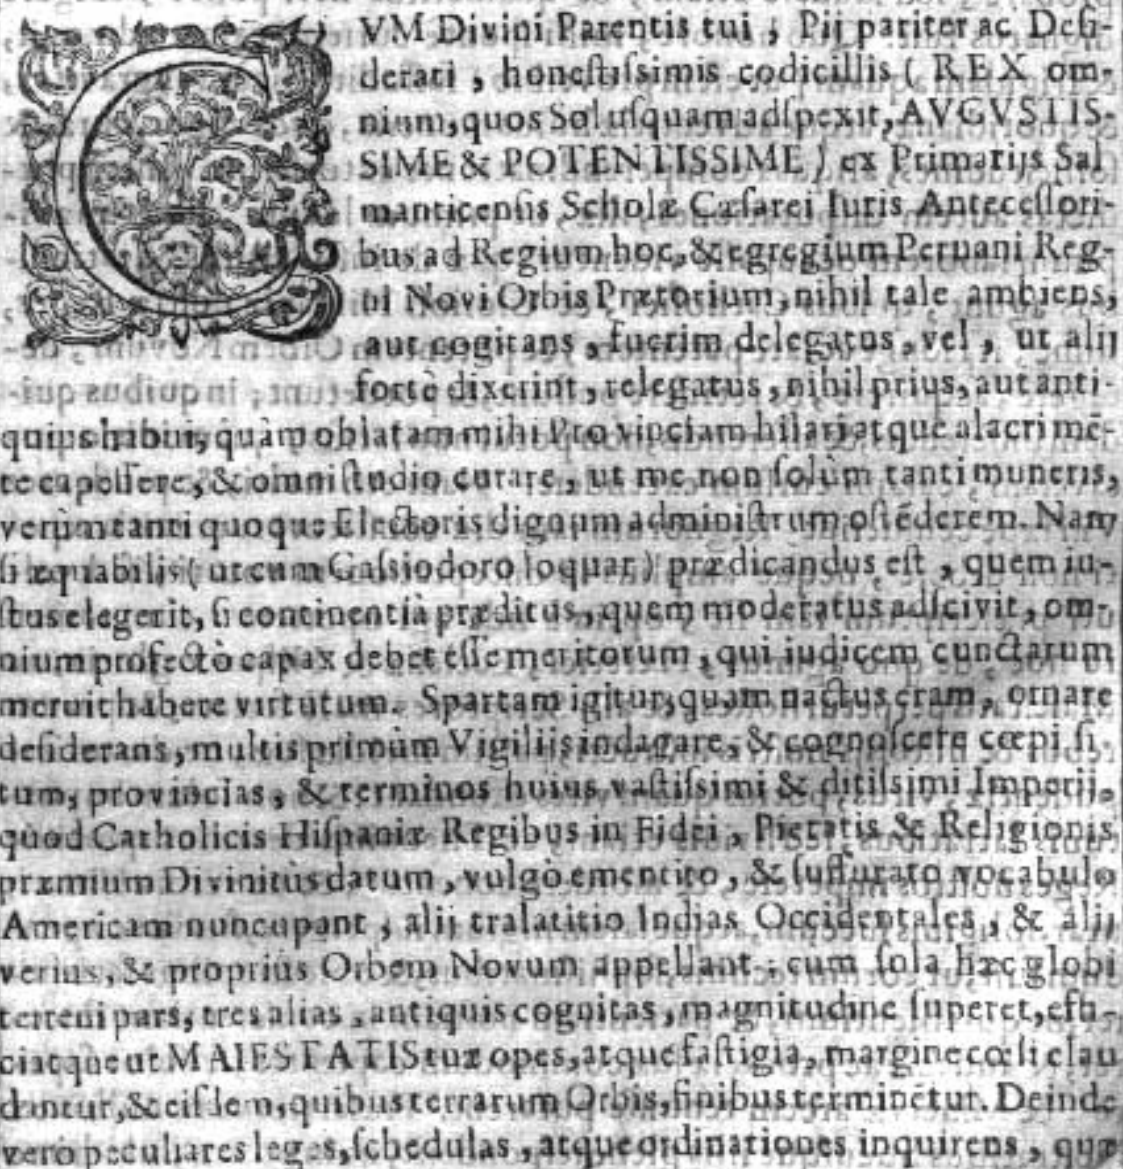 CVM Divini Parentis tui, Pij pariter ac Desi-
derati, honestissimis codicillis (REX om-
nium, quos Sol usquam adspexit, AVGVSTIS-
SIME & POTENTISSIME) ex Primarijs Sal
manticensis Scholæ Cæsarei Iuris Antecessori-
bus ad Regium hoc, & egregium Peruani Reg-
ni Novi Orbis Prætorium, nihil tale ambiens,
aut cogitans, fuerim delegatus, vel, ut alij
fortè dixerint, relegatus, nihil prius, aut anti-
quius habui, quàm oblatam mihi Provinciam hilari atque alacri mē-
te capessere, & omni studio curare, ut me non solùm tanti muneris,
verùm tanti quoque Electoris dignum administrum ostēderem. Nam
si æquabilis (ut cum Cassiodoro loquar) prædicandus est, quem iu-
stus elegerit, si continentià præditus, quem moderatus adscivit, om-
nium profectò capax debet esse meritorum, qui iudicem cunctarum
meruit habere virtutum. Spartam igitur, quam nactus eram, ornare
desiderans, multis primùm Vigilijs indagare, & cognoscere cœpi si-
tum, provincias, & terminos huius vastissimi & ditissimi Imperij,
quod Catholicis Hispaniæ Regibus in Fidei, Pietatis & Religionis
præmium Divinitùs datum, vulgò ementito, & suffurato vocabulo
Americam nuncupant, alij tralatitio Indias Occidentales, & alij
verius, & propriùs Orbem Novum appellant; cum sola hæc globi
terreni pars, tres alias, antiquis cognitas, magnitudine superet, effi-
ciatque ut MAIESTATIS tuæ opes, atque fastigia, margine cœli clau
dantur, & eisdem, quibus terrarum Orbis, finibus terminētur. Deinde
vero peculiares leges, schedulas, atque ordinationes inquirens, quæ